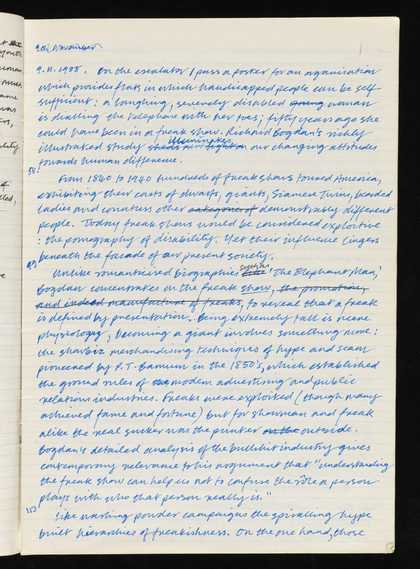 9th November
9.11.1988. On the escalator I pass a poster for an organisation
which provides flats in which handicapped people can be self
sufficient: a laughing, severely disabled young woman
is dialling the telephone with her toes; fifty years ago she
could have been in a freak show. Richard Bogdan's richly
illuminates
illustrated study sheds new light on our changing attitudes
towards human difference.
From 1840 to 1940 hundreds of freak shows toured America,
exhibiting their casts of dwarfs, giants, Siamese Twins, bearded
ladies and countless other categories of demonstrably different
people. Today freak shows would be considered exploitive
: the pornography of disability. Yet their influence lingers
beneath the facade of our present society.
such as
Unlike romanticized biographies like 'The Elephant Man,'
Bogdan concentrates on the freak show, the promotion,
and indeed manufacture of freaks, to reveal that a freak
is defined by presentation. Being extremely tall is mere
physiology, becoming a giant involves something more:
the showbiz merchandising techniques of hype and scam
pioneered by P.T. Barnum in the 1850's, which established
the ground rules of modern advertising and public
relations industries. Freaks were exploited (though many
achieved fame and fortune) but for showman and freak
alike the real sucker was the punter on the outside.
Bogdan's detailed analysis of the bullshit industry gives
contemporary relevance to his argument that "understanding
the freak show can help us not to confuse the role a person
plays with who that person really is."
Like washing powder campaigns the spiralling hype
built hierarchies of freakishness. On the one hand, those